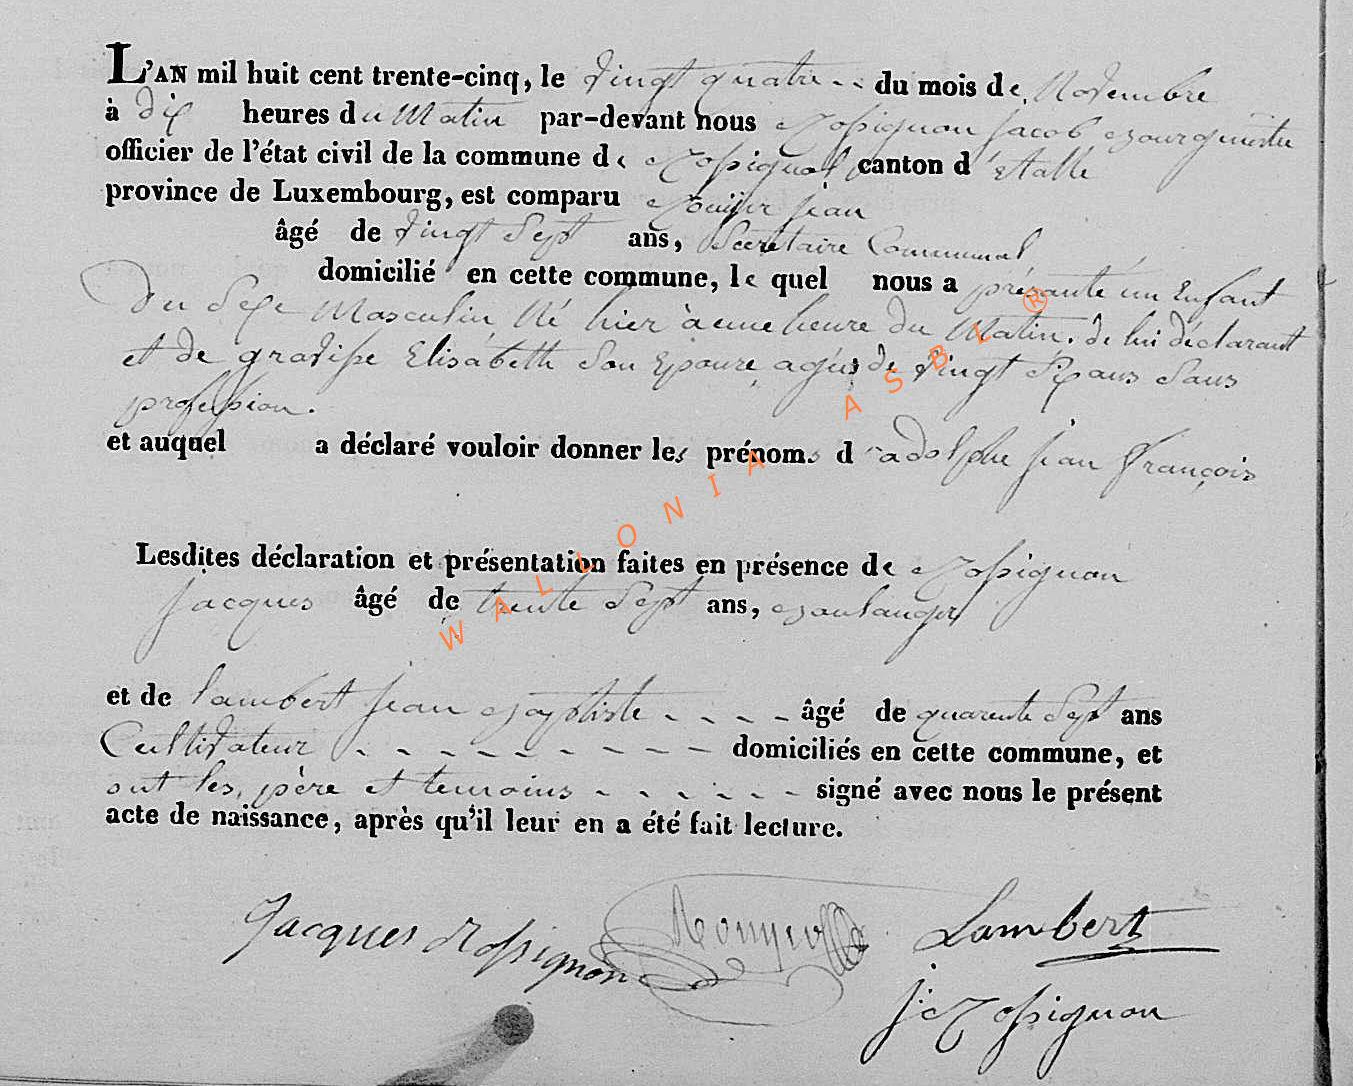 L'AN mil huit cent trente-cinq, le vingt quatre -- du mois de Novembre
à dix heures du Matin par-devant nous Rossignon Jacob Bourguestre
officier de l'état civil de la commune de Rossignol canton d'Etalle
province de Luxembourg, est comparu Jean
âgé de vingt Sept ans, Secretaire Communal
domicilié en cette commune, le quel nous a présanté un Enfant
Du Sexe Masculin Né hier à eune heure du Matin. de lui déclarant
et de Elisabeth Son Epouse agée de vingt Six ans Sans
profession.
et auquel a déclaré vouloir donner les prénoms d'adolphe Jean François
Lesdites déclaration et présentation faites en présence de Rossignon
Jacques âgé de trente Sept ans, Boulanger
et de lambert Jean Baptiste - - - - âgé de quarente Sept ans
Cultivateur - - - - - - - - - domiciliés en cette commune, et
ont les père et temoins - - - - - - signé avec nous le présent
acte de naissance, après qu'il leur en a été fait lecture.
WALLONIA ASBL ®
Jacques Rossignon
Lambert
J: Rossignon